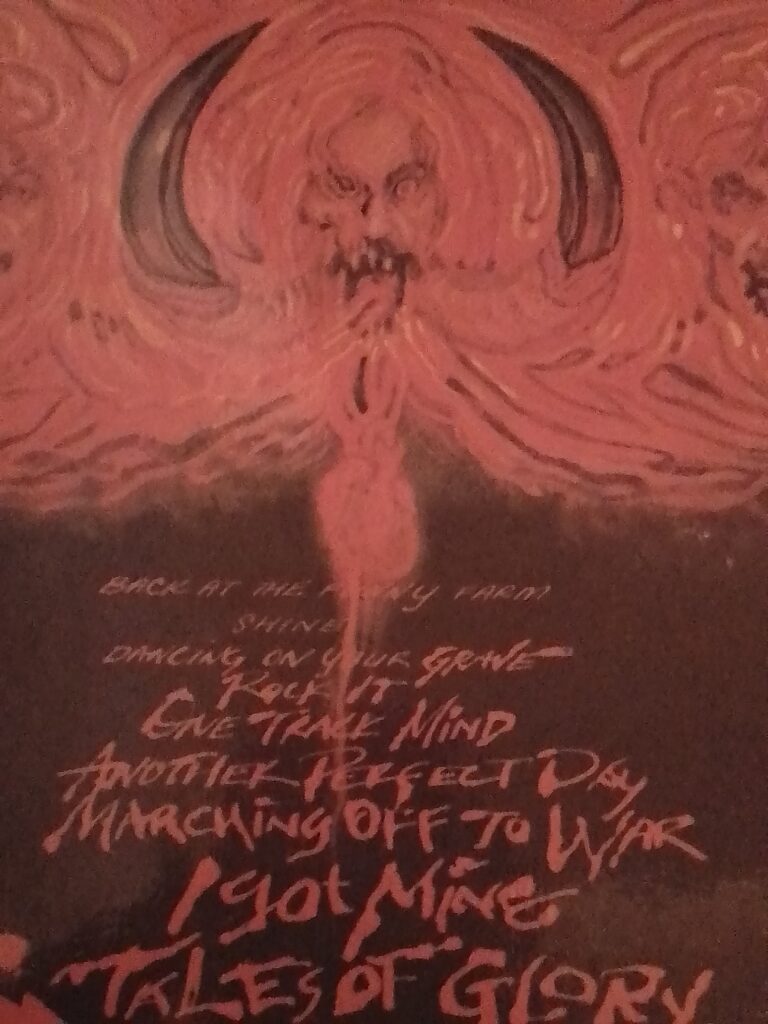 BACK AT THE FUNNY FARM
SHINE
DANCING ON YOUR GRAVE
ROCK IT
ONE TRACK MIND
ANOTHER PERFECT DAY
MARCHING OFF TO WAR
I GOt MINE
TALES OF GLORY